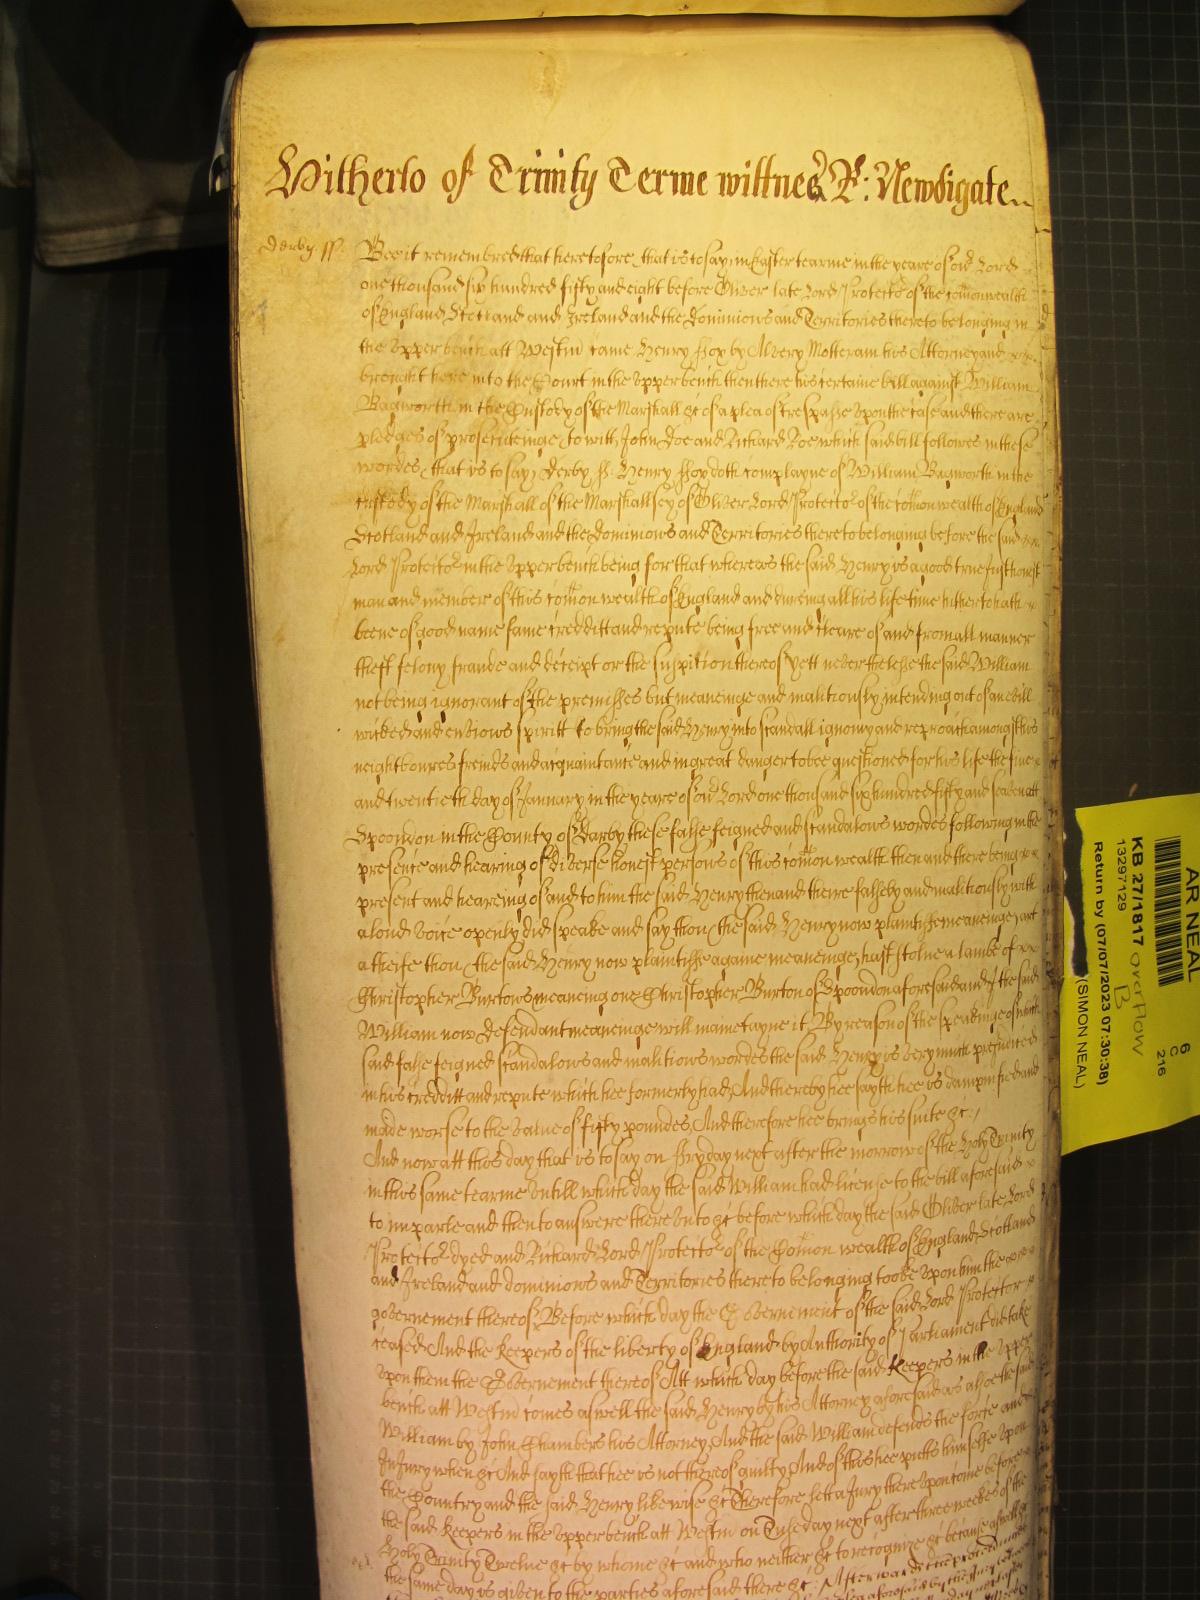 Hitherto of Trinity Terme wittnes R: Newdigate
Derby ss Bee it remembred that heretofore that is to say in Easter tearme in the yeare of our Lord
one thousand six hundred fifty and eight before Oliver late Lord Protector of the comonwealth
of England Scotland and Ireland and the Dominions and Territories thereto belonging in
the upper bench att Westm came Henry Fox by Alvery Motteram his Attorney and
brought here into the Court in the upper bench then there his certaine bill against William
Bagworth in the Custody of the Marshall &c of a plea of trespasse upon the case and there are
pledges of prosecuteinge to witt John Doe and Richard Roe which said bill followes in these
wordes that is to say, Derby ss. Henry Fox doth complayne of William Bagworth in the
custody of the Marshall of the Marshallsey of Oliver Lord Protector of the comonwealth of England
Scotland and Ireland and the Dominions and Territories thereto belonging before the said
Lord Protector in the upper bench being for that whereas the said Henry is a good true just honest
man and member of this comon wealth of England and dureing all his life time hitherto hath
beene of good name fame creditt and repute being free and cleare of and from all manner
theft felony fraude and deceipt or the suspition thereof yett neverthelesse the said William
not being ignorant of the premisses but meaneinge and malitiously intending out of an evill
wicked and envious spiritt to bring the said Henry into scandall ignomy and reproach amongst his
neighboures freinds and acquaintance and in great danger to bee questioned for his life the five
and twentieth day of January in the yeare of our Lord one thousand six hundred fifty and seaven att
Spoondon in the County of Darby these false feigned and scandalous wordes following in the
presence and hearing of diverse honest persons of this comon wealth then and there being
present and heareing of and to him the said Henry then and there falsely and malitiously with
a loud voice openly did speake and say thou (the said Henry now plaintiffe meaneinge) art
a theife thou (the said Henry now plaintiffe againe meaneinge) hast stolne a lambe of
Christopher Burtons meaneing one Christopher Burton of Spoondon aforesaid and I the said
William now defendant meaneinge will mainetayne it By reason of the speakinge of which
said false feigned scandalous and malitious wordes the said Henry is very much prejudiced
in his creditt and repute which hee formerly had, And thereby hee sayth hee is dampnified and
made worse to the value of fifty poundes, And therefore hee brings his suite &c.
And now att this day that is to say on Fryday next after the morrow of the Holy Trinity
in this same tearme untill which day the said William had license to the bill aforesaid
to imparle and then to answere thereunto &c before which day the said Oliver late Lord
Protector dyed and Richard Lord Protector of the Comon wealth of England Scotland
and Ireland and dominions and Territories thereto belonging tooke upon him the
government thereof Before which day the Government of the said Lord Protector
ceased And the Keepers of the liberty of England by Authority of Parliament did take
upon them the Government thereof Att which day before the said Keepers in the upper
bench att Westm comes aswell the said Henry by his Attorney aforesaid as alsoe the said
William by John Chambers his Attorney, And the said William defends the force and
Injury when &c And sayth that hee is not thereof guilty And of this hee putts himselfe upon
the Country and the said Henry likewise &c Therefore lett a Jury thereupon come before
the said Keepers in the upper bench att Westm on Tuseday next after three weekes of the
Holy Trinity Twelve &c by whome &c and who neither &c to recognize &c because aswell &c
the same day is given to the parties aforesaid there &c. Afterwards the
AR NEAL
KB 27/1817 overflow
B
13297129
Return by (07/07/2023 07:30:38)
(SIMON NEAL)
6
C
216